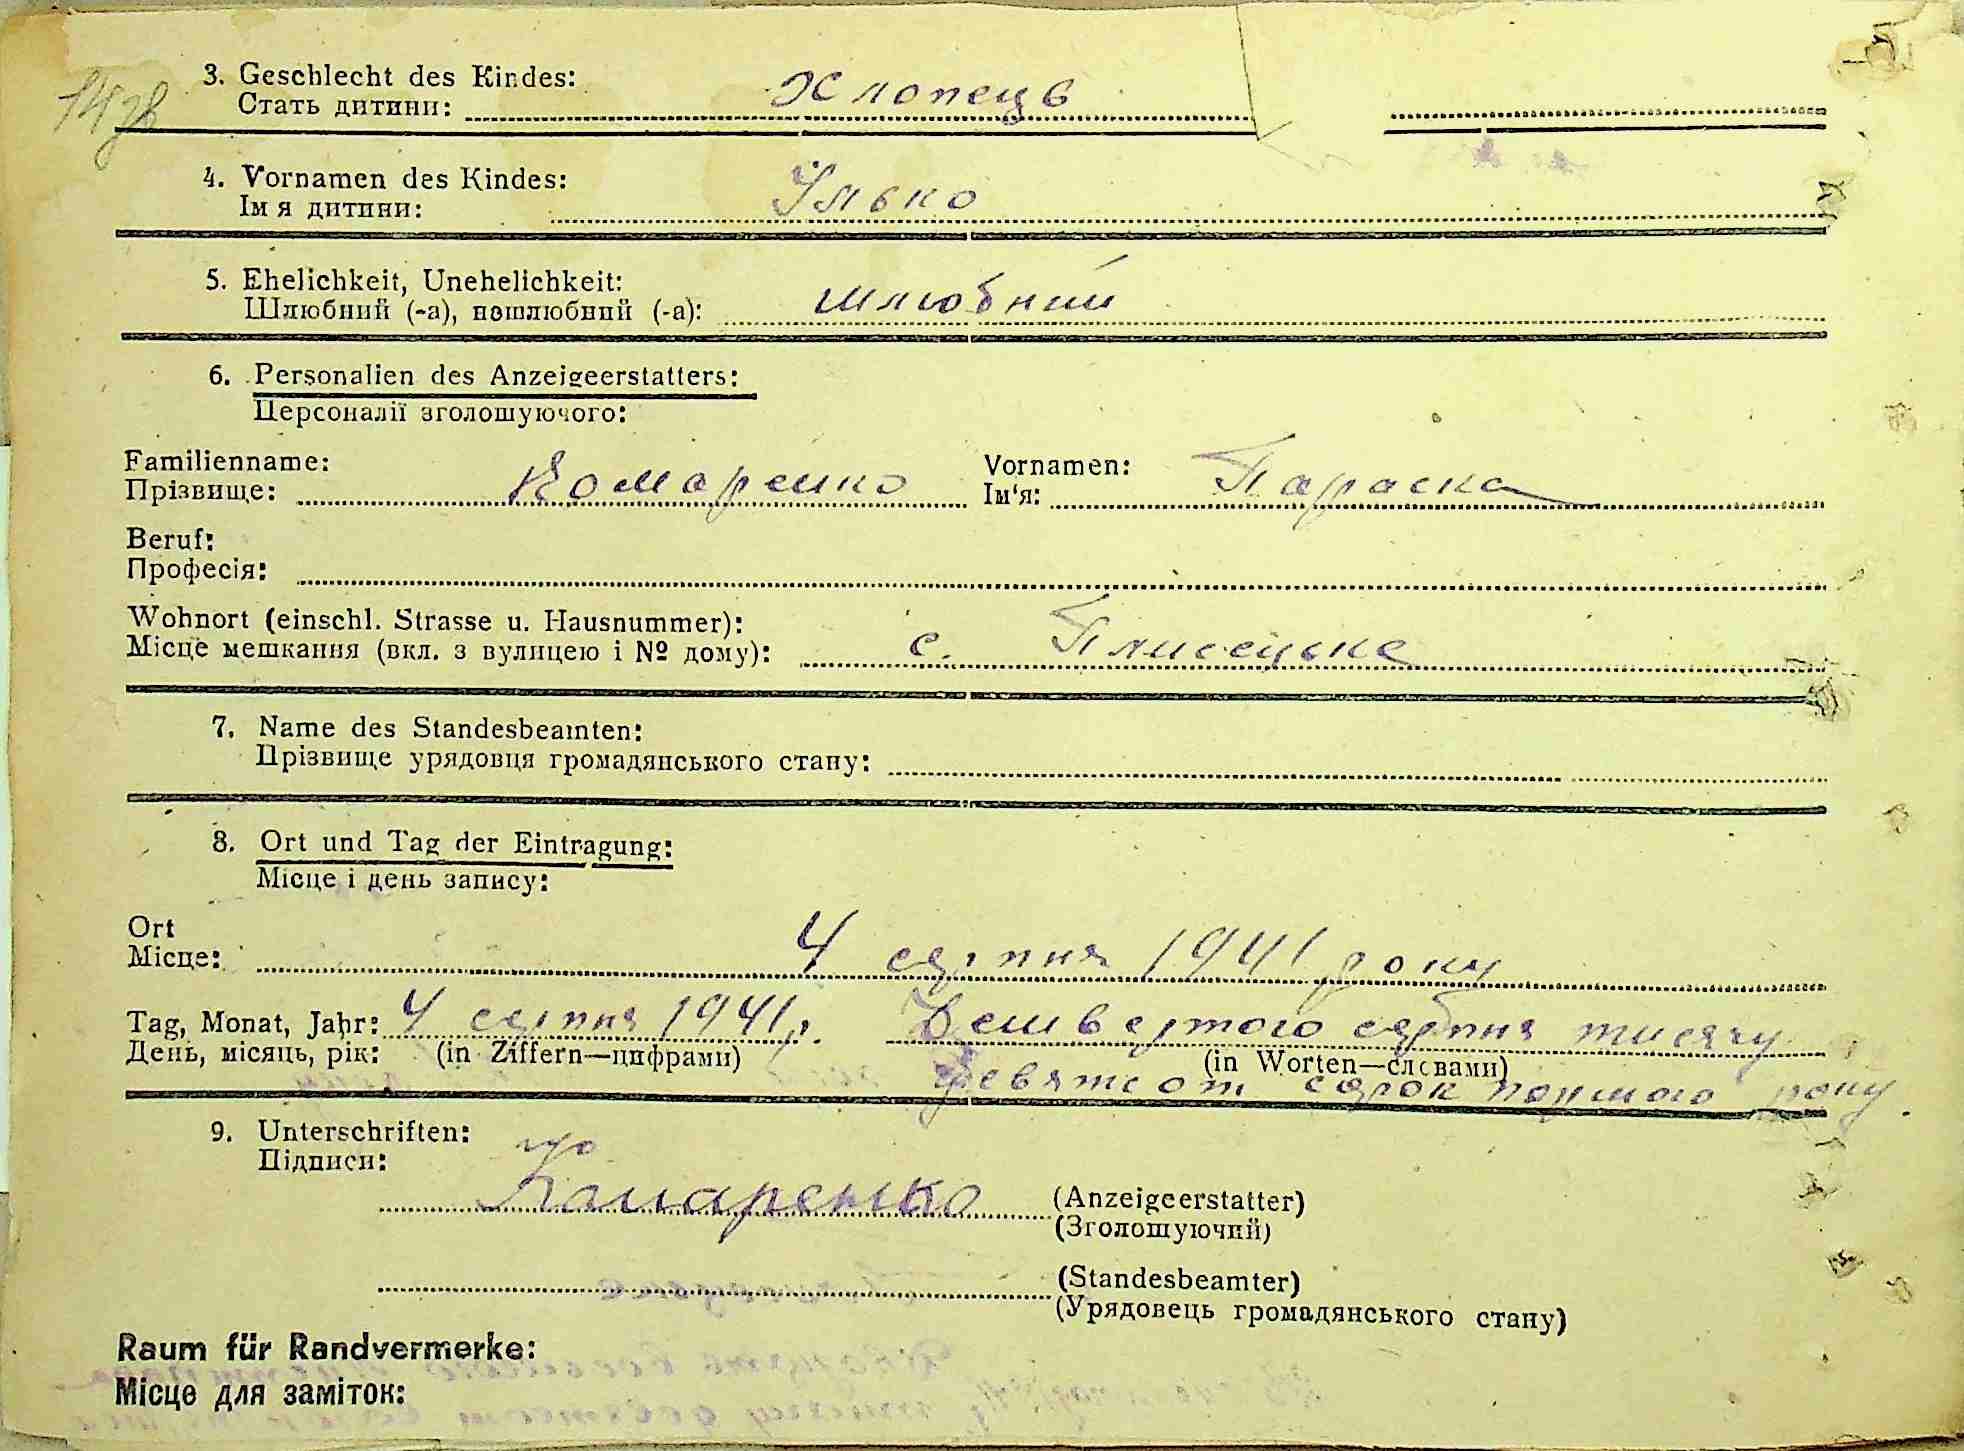 3. Geschlecht des Kindes:
Стать дитини: Хлопець
4. Vornamen des Kindes:
Ім я дитини: Ілько
5. Ehelichkeit, Unehelichkeit:
Шлюбний (-а), нешлюбний (-а): шлюбний
6. Personalien des Anzeigeerstatters:
Персоналії зголошуючого:
Familienname: Vornamen:
Прізвище: Комаренко Ім'я: Параска
Beruf:
Професія:
Wohnort (einschl. Strasse u. Hausnummer):
Місце мешкання (вкл. з вулицею і № дому): с. Плисецьке
7. Name des Standesbeamten:
Прізвище урядовця громадянського стану:
8. Ort und Tag der Eintragung:
Місце і день запису:
Ort
Місце: 4 серпня 1941 року
Tag, Monat, Jahr: 4 серпня 1941 р. Четвертого серпня тисячу
День, місяць, рік: (in Ziffern—цифрами) (in Worten—словами)
девятсот сорок першого року.
9. Unterschriften:
Підписи:
Комаренко (Anzeigeerstatter)
(Зголошуючий)
(Standesbeamter)
(Урядовець громадянського стану)
Raum für Randvermerke:
Місце для заміток: